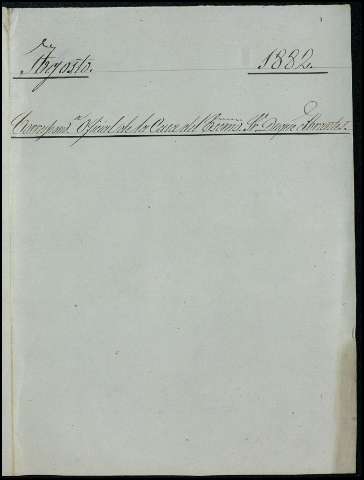 Agosto. 1882.
Correspond.ª Oficial de la Casa del Excmo. Sr. Duque Abrantes.